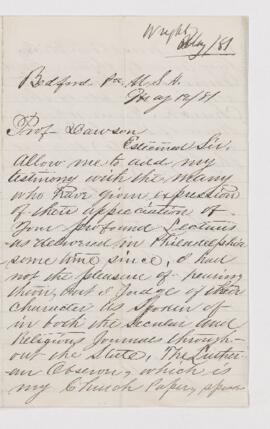 Wright
May/81
Bedford Pa. U.S.A.
May 12/81
Prof. Dawson
Esteemed Sir,
Allow me to add my
testimony with the many
who have given expression
of their appreciation of
your profound Lectures
as delivered in Philadelphia
some time since, I had
not the pleasure of hearing
them, but I Judge of their
character as spoken of
in both the Secular and
Religious Journals through-
out the State, The Luther-
an Observer, which is
my Church Paper,